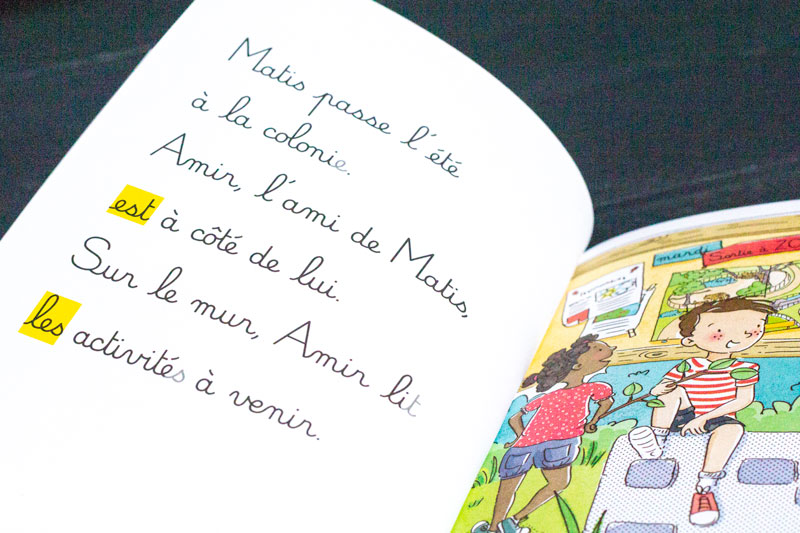 Matis passe l'été
à la colonie.
Amir, l'ami de Matis,
est à côté de lui.
Sur le mur, Amir lit
les activités à venir.
mardi
Sortie à